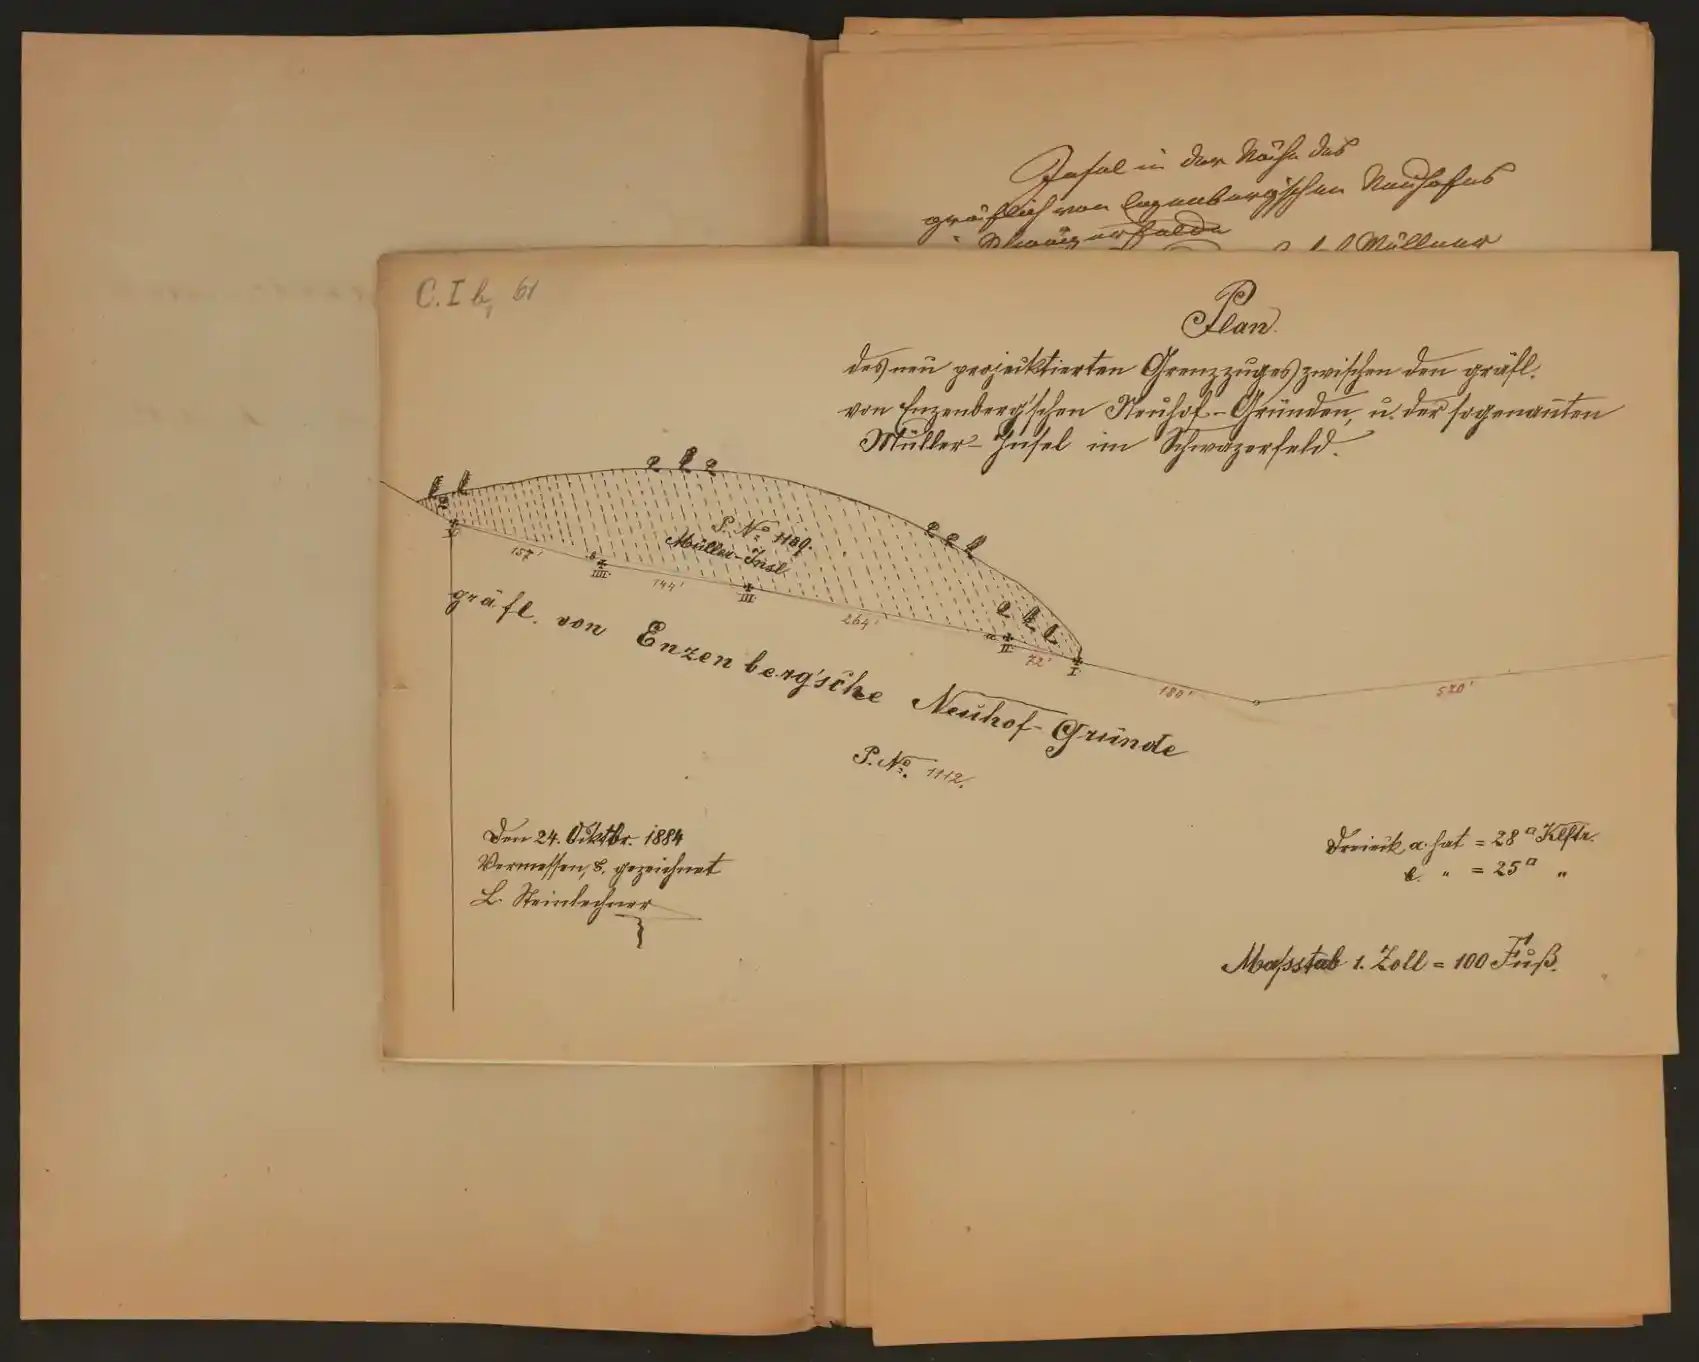 Insel in der Nähe des
gräflich von Enzenberg'schen Neuhofes
Schwazerfelde Müllner
C. I b, 61
Plan.
des neu projecktierten Grenzzuges zwischen den gräfl.
von Enzenberg'schen Neuhof-Gründen, u. der sogenannten
Müller-Insel im Schwazerfeld.
P. No. 1189.
Müller-Insel
157'
IIII
144'
III
264'
a
II
72'
I
180'
520'
gräfl. von Enzenberg'sche Neuhof-Gründe
P. No. 1112.
Den 24. Oktbr. 1884
Vermessen, & gezeichnet
L. Steinlechner
Dreieck a. hat = 28□ Klftr.
" = 25□ "
Massstab 1. Zoll = 100 Fuß.